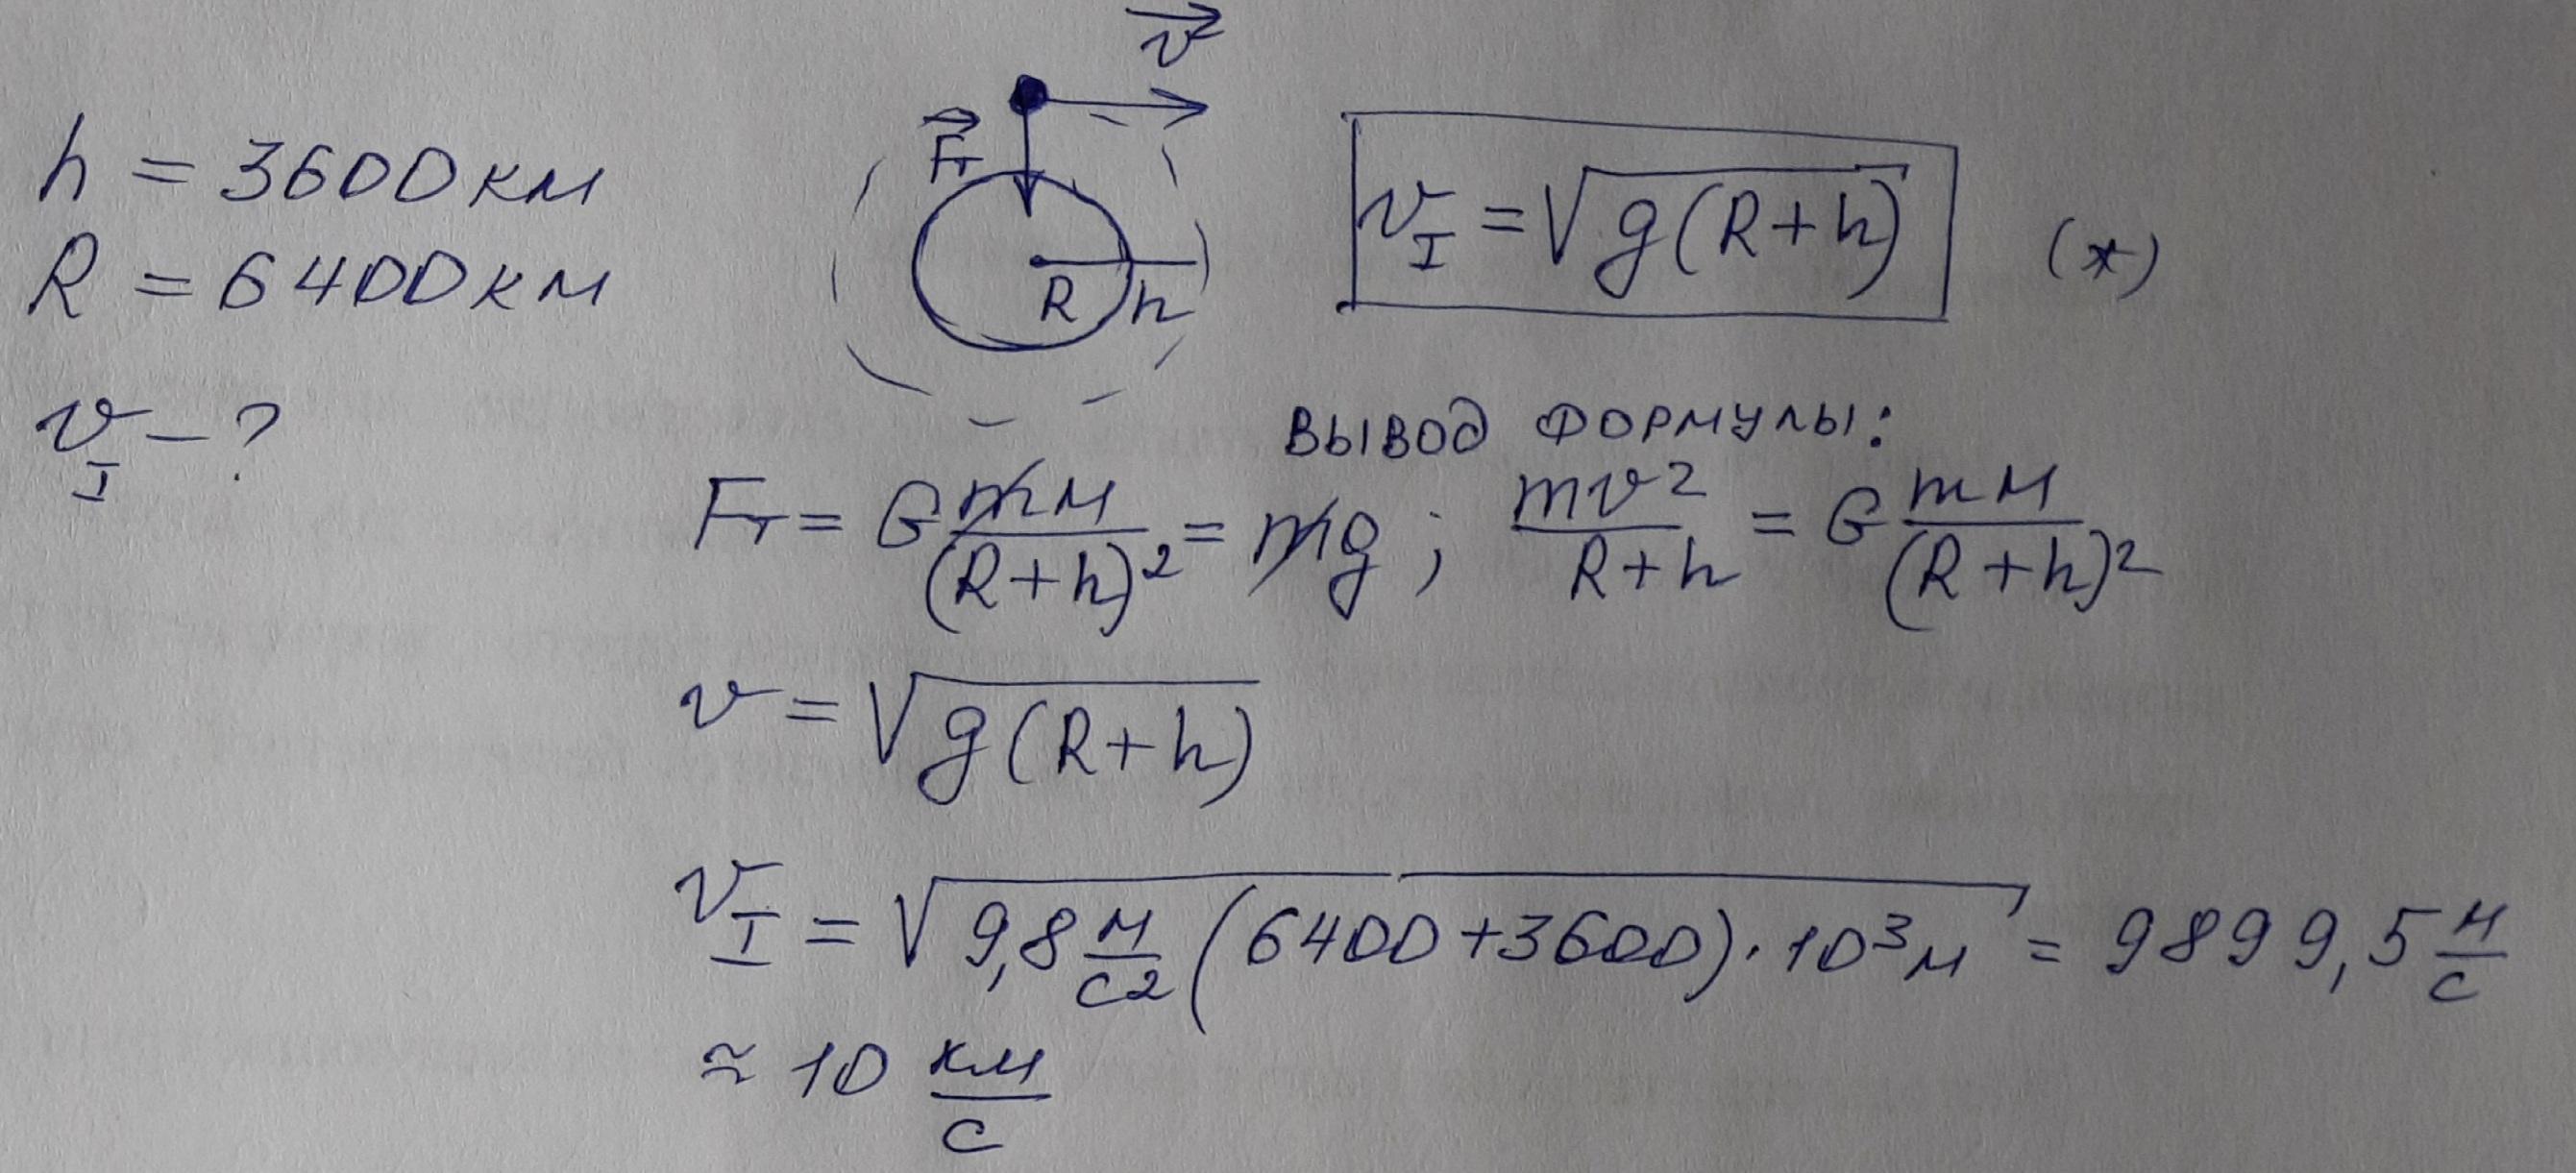 h = 3600 км
R = 6400 км
v_I − ?
v⃗
F⃗т
R h
v_I = √(g(R+h)) (*)
вывод формулы:
Fт = G mM/(R+h)² = mg ; mv²/(R+h) = G mM/(R+h)²
v = √(g(R+h))
v_I = √(9,8 м/с² (6400+3600)·10³ м) = 9899,5 м/с
≈ 10 км/с